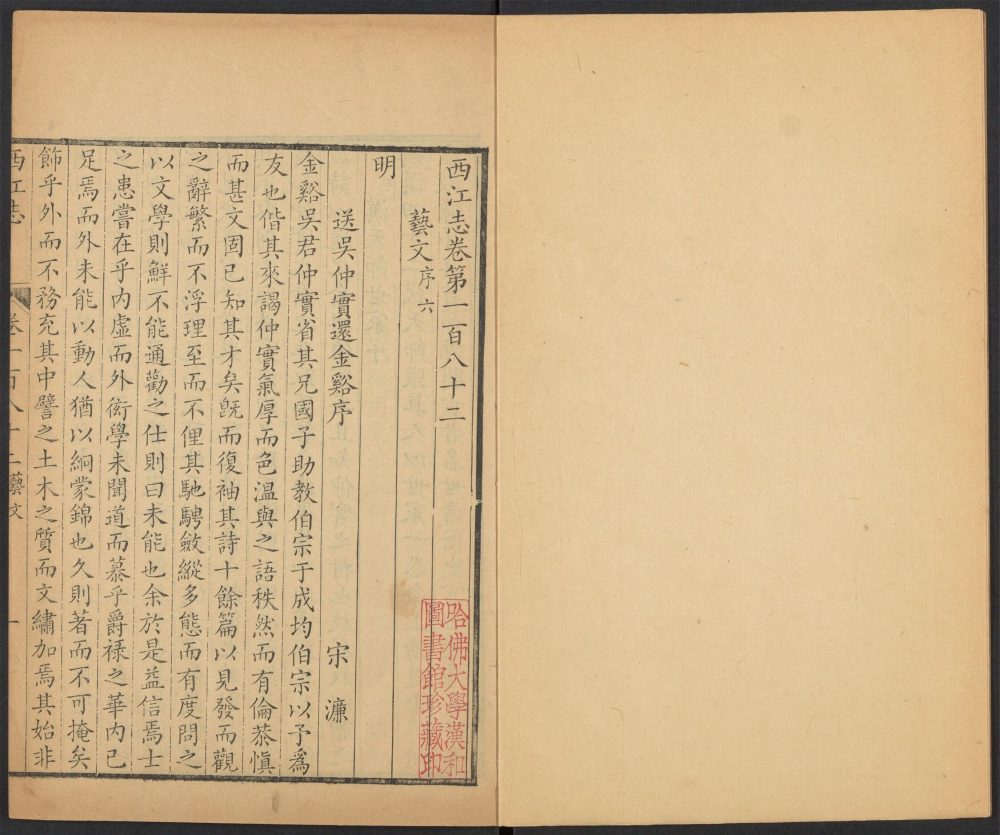 西江志卷第一百八十二
藝文序六
明
送吳仲實還金谿序
宋濂
金谿吳君仲實省其兄國子助教伯宗于成均伯宗以予爲
友也偕其來謁仲實氣厚而色溫與之語秩然而有倫恭愼
而甚文固已知其才矣旣而復袖其詩十餘篇以見發而觀
之辭繁而不浮理至而不俚其馳騁斂縱多態而有度問之
以文學則鮮不能通勸之仕則曰未能也余於是益信焉士
之患嘗在乎內虛而外衒學未聞道而慕乎爵祿之華內已
足焉而外未能以動人猶以絅蒙錦也久則著而不可掩矣
飾乎外而不務充其中譬之土木之質而文繡加焉其始非
西江志
卷一百八十二藝文
一
哈佛大學漢和
圖書館珍藏印